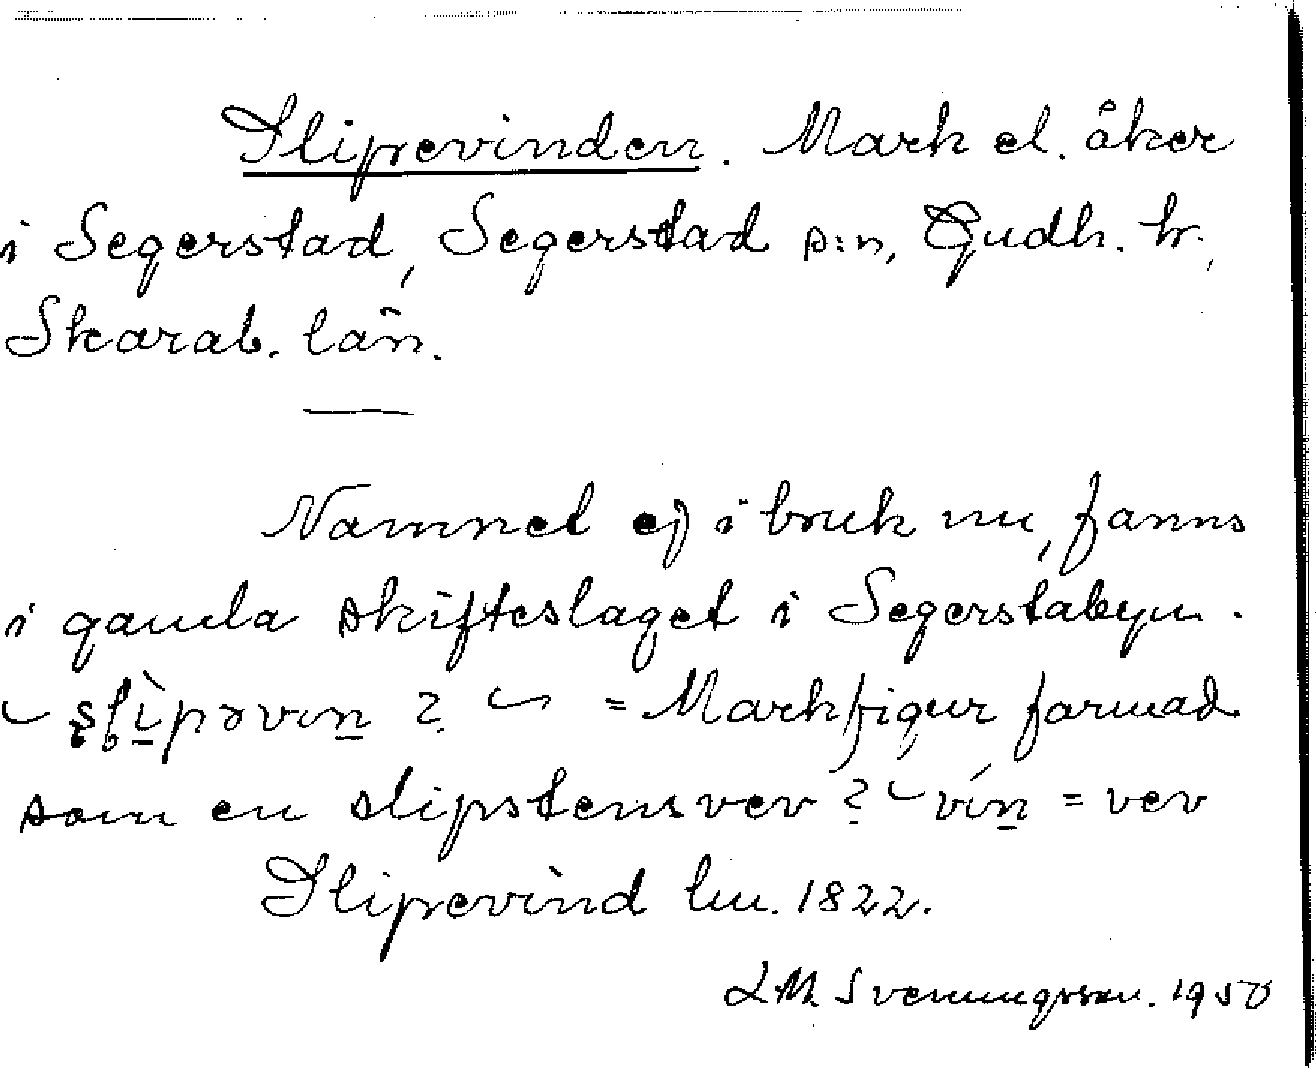 Slipevinden. Mark el. åker
i Segerstad, Segerstad s:n, Gudh. hr.,
Skarab. län.
Namnet ej i bruk nu, fanns
i gamla skifteslaget i Segerstabyn.
? = Markfigur formad
som en slipstensvev? vín = vev
Slipevind lm. 1822.
L M Svenungsson. 1950